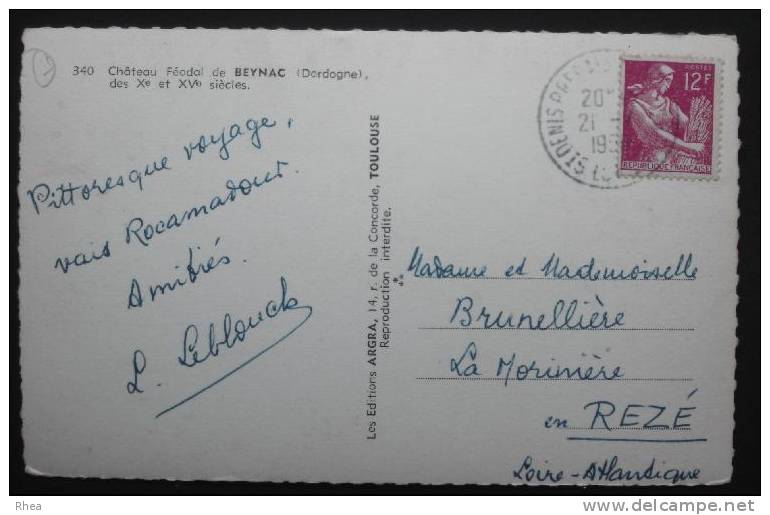 340 Château Féodal de BEYNAC (Dordogne),
des Xe et XVe siècles.
Pittoresque voyage,
vais Rocamadour.
Amitiés.
L. Leblouch
Les Editions ARGRA, 14, r. de la Concorde, TOULOUSE
Reproduction interdite.
POSTES
12F
REPUBLIQUE FRANÇAISE
20H
21
195
ST DENIS
Madame et Mademoiselle
Brunellière
La Morinière
en REZÉ
Loire-Atlantique
Rhea
www.delcampe.net